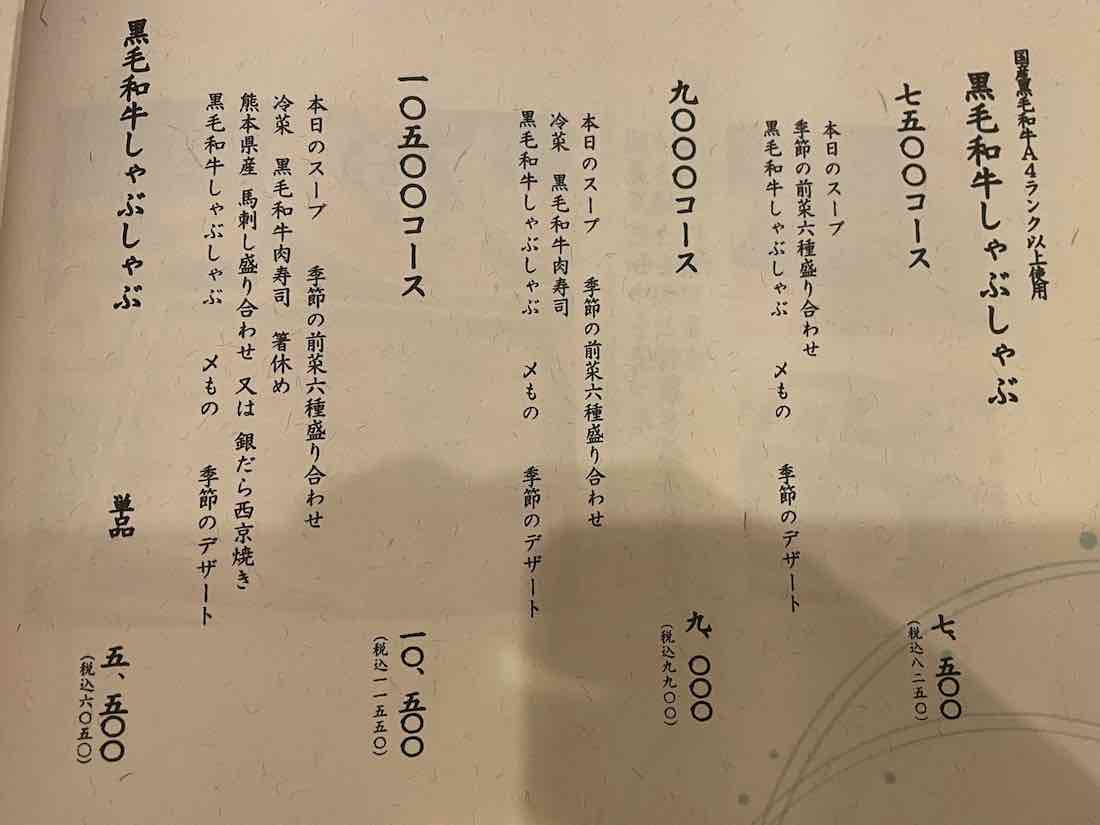 国産黒毛和牛A4ランク以上使用
黒毛和牛しゃぶしゃぶ
七五〇〇コース
七、五〇〇
(税込八二五〇)
本日のスープ
季節の前菜六種盛り合わせ
黒毛和牛しゃぶしゃぶ 〆もの 季節のデザート
九〇〇〇コース
九、〇〇〇
(税込九九〇〇)
本日のスープ 季節の前菜六種盛り合わせ
冷菜 黒毛和牛肉寿司
黒毛和牛しゃぶしゃぶ 〆もの 季節のデザート
一〇五〇〇コース
一〇、五〇〇
(税込一一五五〇)
本日のスープ 季節の前菜六種盛り合わせ
冷菜 黒毛和牛肉寿司 箸休め
熊本県産 馬刺し盛り合わせ 又は 銀だら西京焼き
黒毛和牛しゃぶしゃぶ 〆もの 季節のデザート
黒毛和牛しゃぶしゃぶ 単品
五、五〇〇
(税込六〇五〇)